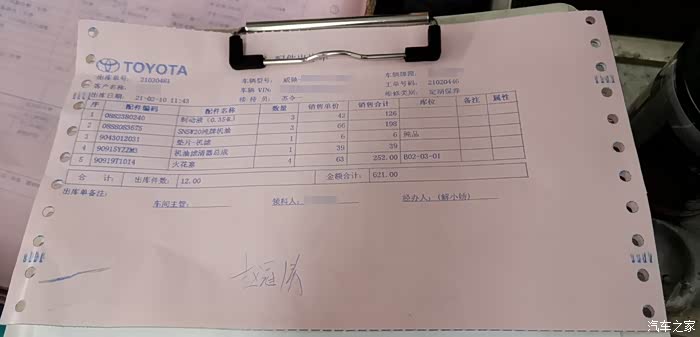 TOYOTA
出库单号: 21020461 车辆型号: 威驰 车辆牌照:
客户名称: 车辆 VIN: 工单号码: 21020446
出库日期: 21-02-10 11:43 接 待 员: 苏 维修类别: 定期保养
序 配件编码 配件名称 数量 销售单价 销售合计 库位 备注 属性
1 0882380240 制动液 (0.35K) 3 42 126
2 0888083675 SN5W20纯牌机油 3 66 198
3 9043012031 垫片-机滤 1 6 6 纯品
4 90915YZZM3 机油滤清器总成 1 39 39
5 90919T1014 火花塞 4 63 252.00 B02-03-01
合 计: 出库件数: 12.00 金额合计: 621.00
出库单备注:
车间主管: 领料人: 经办人: (解小扬)
汽车之家